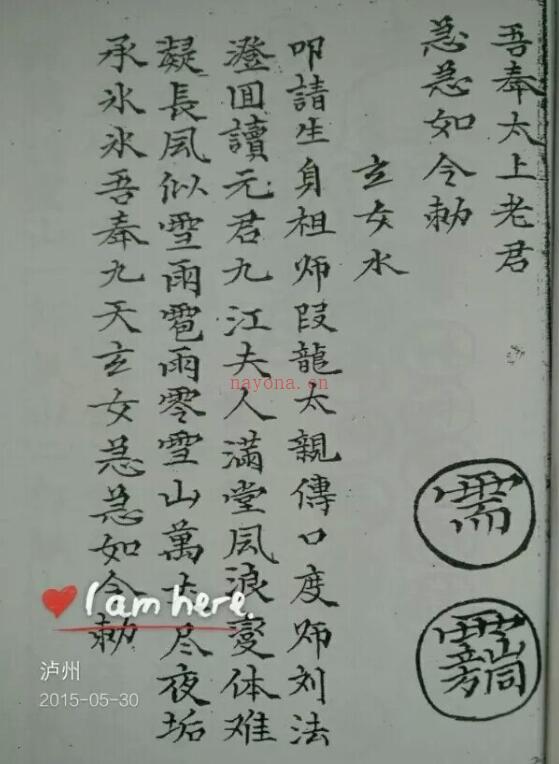 吾奉太上老君
急急如令勅
玄女水
叩請生身祖师段龍太親傳口度师刘法
澄囬讀元君九江夫人滿堂風浪愛体难
凝長風似雪雨雹雨零雪山萬尽夜垢
承氷氷吾奉九天玄女急急如令勅
nayona.cn
I am here.
泸州
2015-05-30